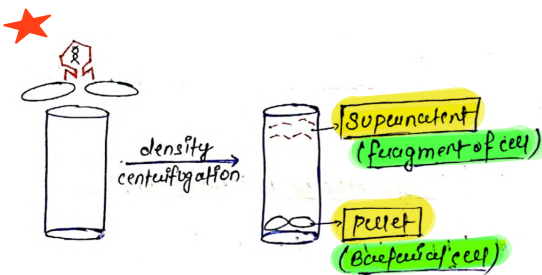 density
centrifugation
Supernatent
(fragment of cell)
pellet
(Bacterial cell)